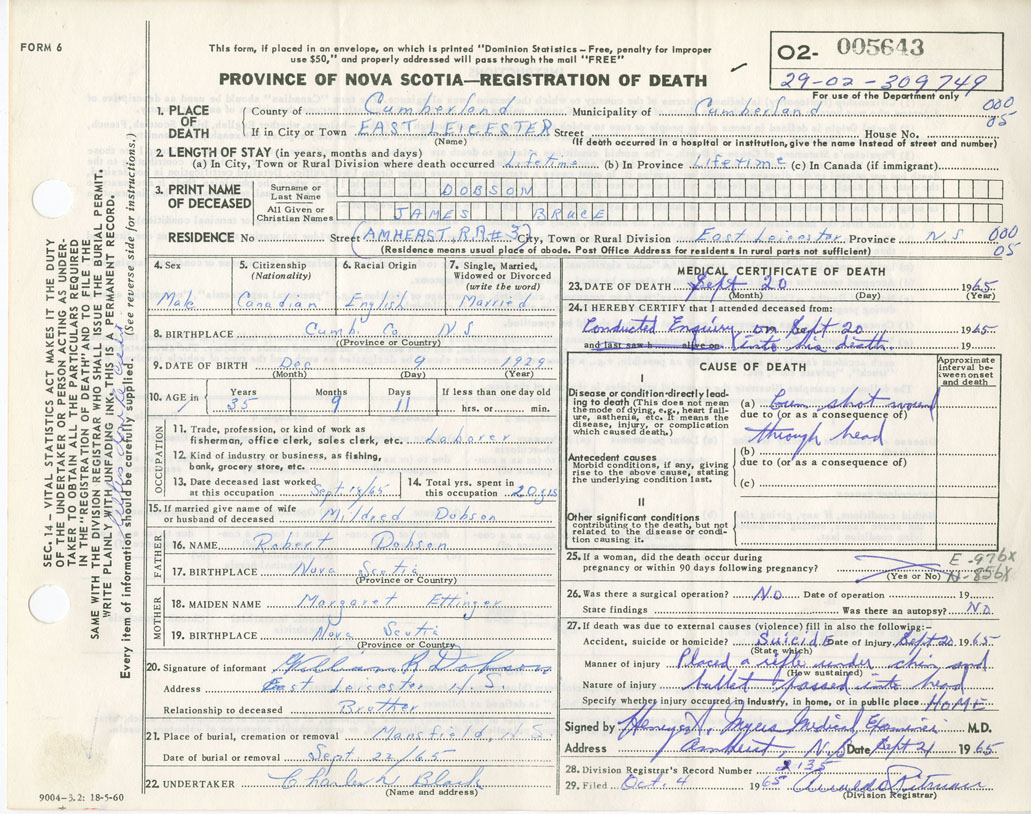 FORM 6
This form, if placed in an envelope, on which is printed "Dominion Statistics – Free, penalty for improper
use $50," and properly addressed will pass through the mail "FREE"
PROVINCE OF NOVA SCOTIA—REGISTRATION OF DEATH
02- 005643
29-02-309749
For use of the Department only
1. PLACE OF DEATH
County of Cumberland Municipality of Cumberland 000
If in City or Town EAST LEICESTER Street House No. 05
(Name) (If death occurred in a hospital or institution, give the name instead of street and number)
2. LENGTH OF STAY (in years, months and days)
(a) In City, Town or Rural Division where death occurred Lifetime (b) In Province Lifetime (c) In Canada (if immigrant)
3. PRINT NAME OF DECEASED
Surname or Last Name DOBSON
All Given or Christian Names JAMES BRUCE
RESIDENCE No Street (AMHERST, RR#3) City, Town or Rural Division East Leicester Province N S 000
(Residence means usual place of abode. Post Office Address for residents in rural parts not sufficient) 05
4. Sex
Male
5. Citizenship (Nationality)
Canadian
6. Racial Origin
English
7. Single, Married, Widowed or Divorced (write the word)
Married
8. BIRTHPLACE Cumb. Co. N S
(Province or Country)
9. DATE OF BIRTH Dec 9 1929
(Month) (Day) (Year)
10. AGE in Years Months Days If less than one day old
35 9 11 hrs. or min.
OCCUPATION
11. Trade, profession, or kind of work as
fisherman, office clerk, sales clerk, etc. Laborer
12. Kind of industry or business, as fishing,
bank, grocery store, etc.
13. Date deceased last worked
at this occupation Sept 18/65
14. Total yrs. spent in
this occupation 20 yrs
15. If married give name of wife
or husband of deceased Mildred Dobson
FATHER
16. NAME Robert Dobson
17. BIRTHPLACE Nova Scotia
(Province or Country)
MOTHER
18. MAIDEN NAME Margaret Ettinger
19. BIRTHPLACE Nova Scotia
(Province or Country)
20. Signature of informant William R Dobson
Address East Leicester N. S.
Relationship to deceased Brother
21. Place of burial, cremation or removal Mansfield, N.S.
Date of burial or removal Sept 22/65
22. UNDERTAKER Black
(Name and address)
MEDICAL CERTIFICATE OF DEATH
23. DATE OF DEATH Sept 20 1965
(Month) (Day) (Year)
24. I HEREBY CERTIFY that I attended deceased from:
Conducted Enquiry on Sept 20 1965
and last saw h alive on into his death. 19
CAUSE OF DEATH
Approximate interval between onset and death
I
Disease or condition directly leading to death (This does not mean
the mode of dying, e.g., heart failure, asthenia, etc. It means the
disease, injury, or complication
which caused death.)
(a) Gun shot wound
due to (or as a consequence of)
through head
(b)
due to (or as a consequence of)
(c)
Antecedent causes
Morbid conditions, if any, giving
rise to the above cause, stating
the underlying condition last.
II
Other significant conditions
contributing to the death, but not
related to the disease or condition causing it.
25. If a woman, did the death occur during
pregnancy or within 90 days following pregnancy?
(Yes or No)
E-976X
N-856X
26. Was there a surgical operation? No Date of operation 19
State findings Was there an autopsy? No
27. If death was due to external causes (violence) fill in also the following:–
Accident, suicide or homicide? Suicide Date of injury Sept 20 1965
(State which)
Manner of injury Placed a rifle under chin and
(How sustained)
Nature of injury bullet passed into head
Specify whether injury occurred in industry, in home, or in public place HOME
Signed by Myers Medical Examiner M.D.
Address Amherst, N.S. Date Sept 21 1965
28. Division Registrar's Record Number 2135
29. Filed Oct. 4 1965
(Division Registrar)
SEC. 14 – VITAL STATISTICS ACT MAKES IT THE DUTY
OF THE UNDERTAKER OR PERSON ACTING AS UNDERTAKER TO OBTAIN ALL THE PARTICULARS REQUIRED
IN THE "REGISTRATION OF DEATH" AND TO FILE THE
SAME WITH THE DIVISION REGISTRAR WHO SHALL ISSUE THE BURIAL PERMIT.
WRITE PLAINLY WITH UNFADING INK. THIS IS A PERMANENT RECORD.
Every item of information should be carefully supplied. (See reverse side for instructions.)
9004–3.2: 18-5-60